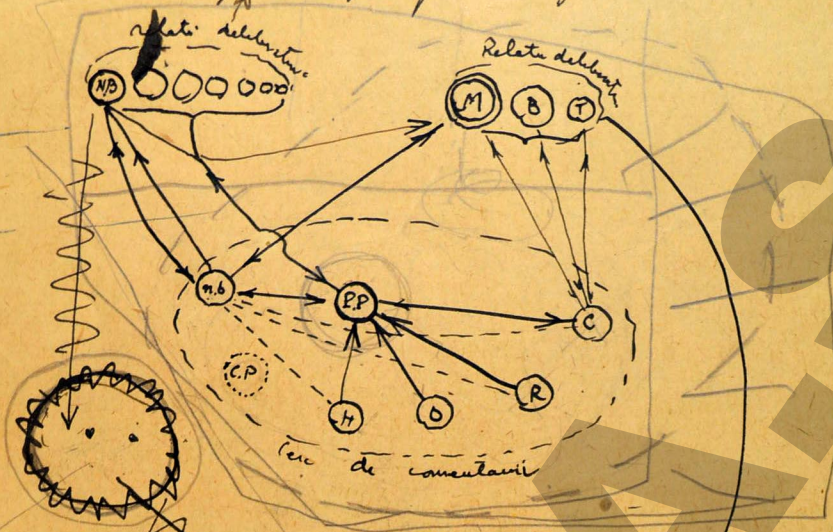 relatii deliberative
Relatii deliberative
NB
M
B
T
n.b
P.P
C
C.P
H
O
R
Cerc de comentarii